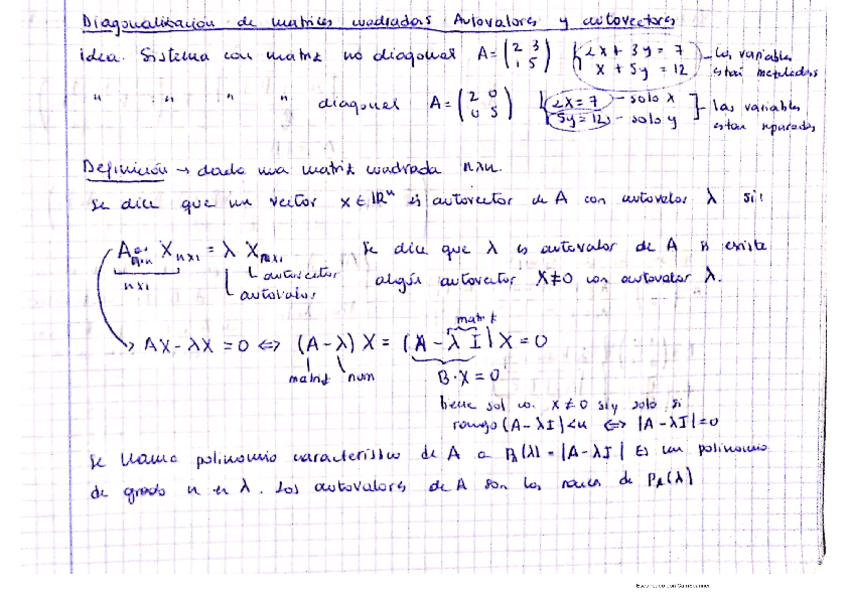 Diagonalización de matrices cuadradas Autovalores y autovectores
idea. Sistema con matriz no diagonal A = (2 3 / 1 5) { 2x + 3y = 7 / x + 5y = 12 } – Las variables están mezcladas
" " " " diagonal A = (2 0 / 0 5) { 2x = 7 – solo x / 5y = 12 – solo y ] – las variables están separadas
Definición → dada una matriz cuadrada nxn.
Se dice que un vector x ∈ ℝⁿ es autovector de A con autovalor λ si:
A nxn X nx1 = λ X nx1 Se dice que λ es autovalor de A si existe
nx1 autovector algún autovector X≠0 con autovalor λ.
autovalor
AX - λX = 0 ⇔ (A - λ) X = (A - λ I) X = 0
matriz
matriz num B·X = 0
tiene sol X ≠ 0 si y solo si
rango (A - λI) < n ⇔ |A - λI| = 0
Se llama polinomio característico de A a P_A(λ) = |A - λI| Es un polinomio
de grado n en λ. Los autovalores de A son las raíces de P_A(λ)
Escaneado con CamScanner